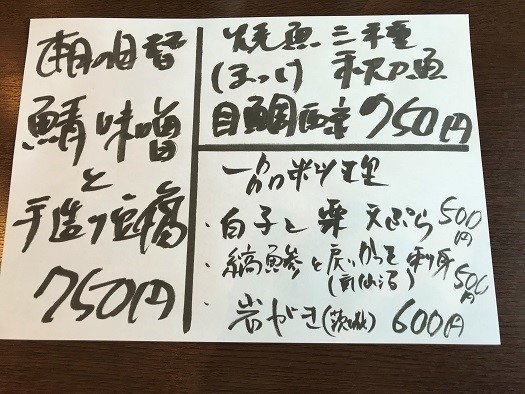 朝の目替
鯖味噌
と
手造り豆腐
750円
焼魚三種
ほっけ 秋刀魚
目鯛西京 750円
一品料理
・白子と栗天ぷら 500円
・縞鯵と戻りかつを刺身 500円
(気仙沼)
・岩がき(茨城) 600円